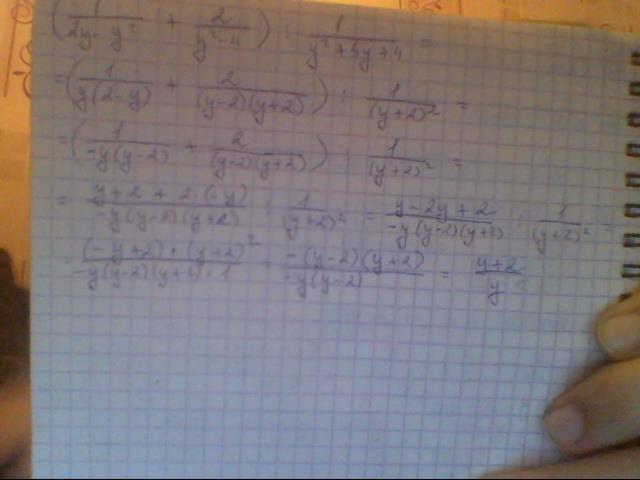 (1/(2y-y²) + 2/(y²-4)) : 1/(y²+4y+4) =
= (1/(y(2-y)) + 2/((y-2)(y+2))) : 1/(y+2)² =
= (1/(-y(y-2)) + 2/((y-2)(y+2))) : 1/(y+2)² =
= (y+2+2·(-y))/(-y(y-2)(y+2)) : 1/(y+2)² = (y-2y+2)/(-y(y-2)(y+2)) : 1/(y+2)² =
= ((-y+2)·(y+2)²)/(-y(y-2)(y+2)·1) = (-(y-2)(y+2))/(-y(y-2)) = (y+2)/y